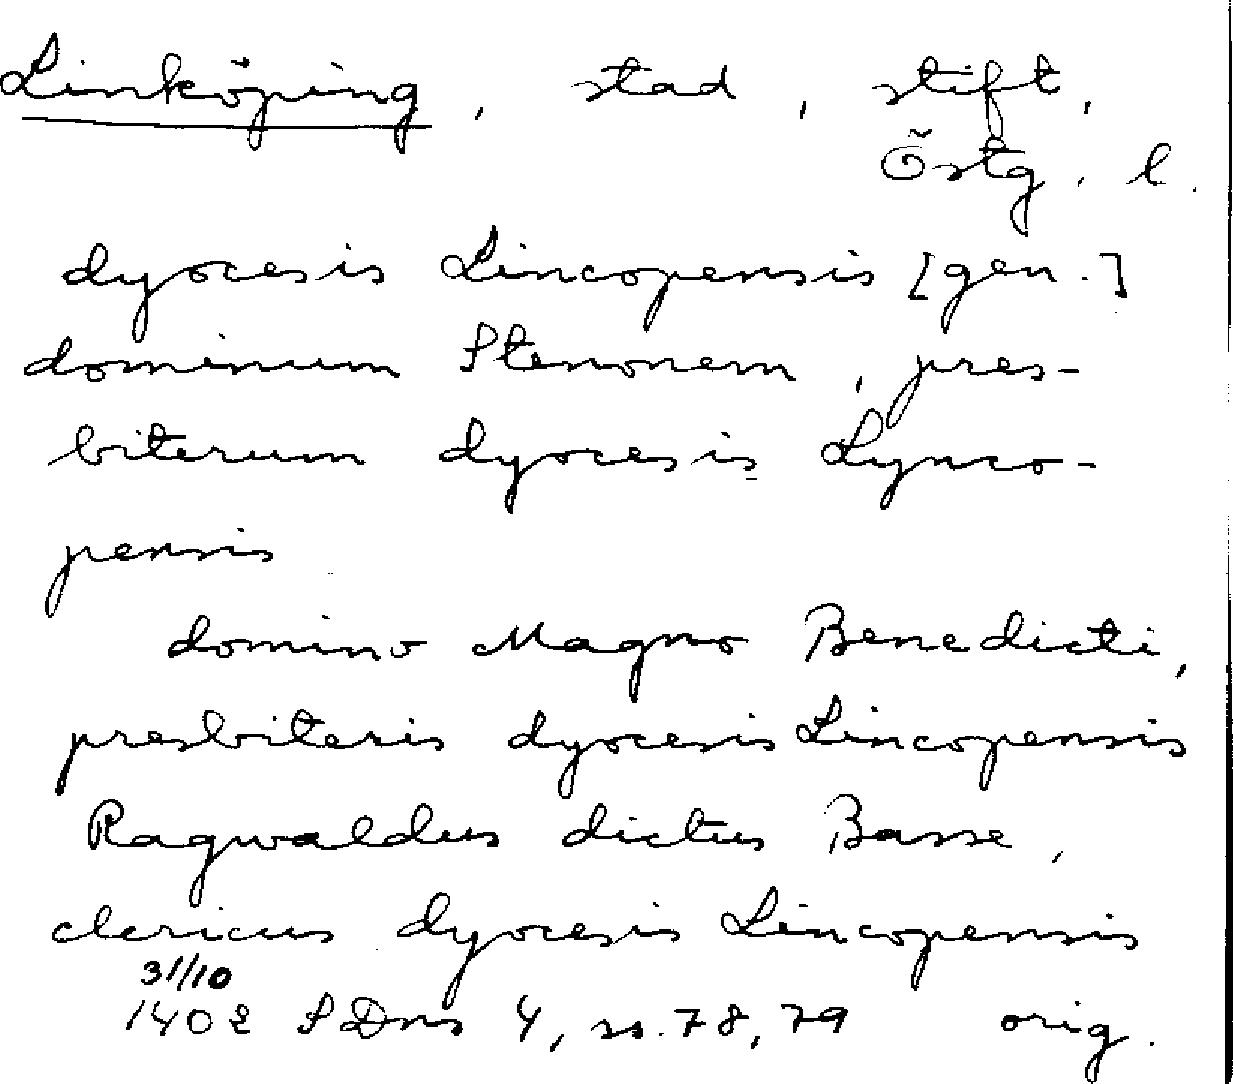 Linköping, stad, stift,
Östg. l.
dyocesis Lincopensis [gen.]
dominum Stenonem, pres-
biterum dyocesis Lynco-
pensis
domino Magno Benedicti,
presbiteris dyocesis Lincopensis
Ragwaldus dictus Basse,
clericus dyocesis Lincopensis
31/10
1402 SDns 4, ss. 78, 79 orig.